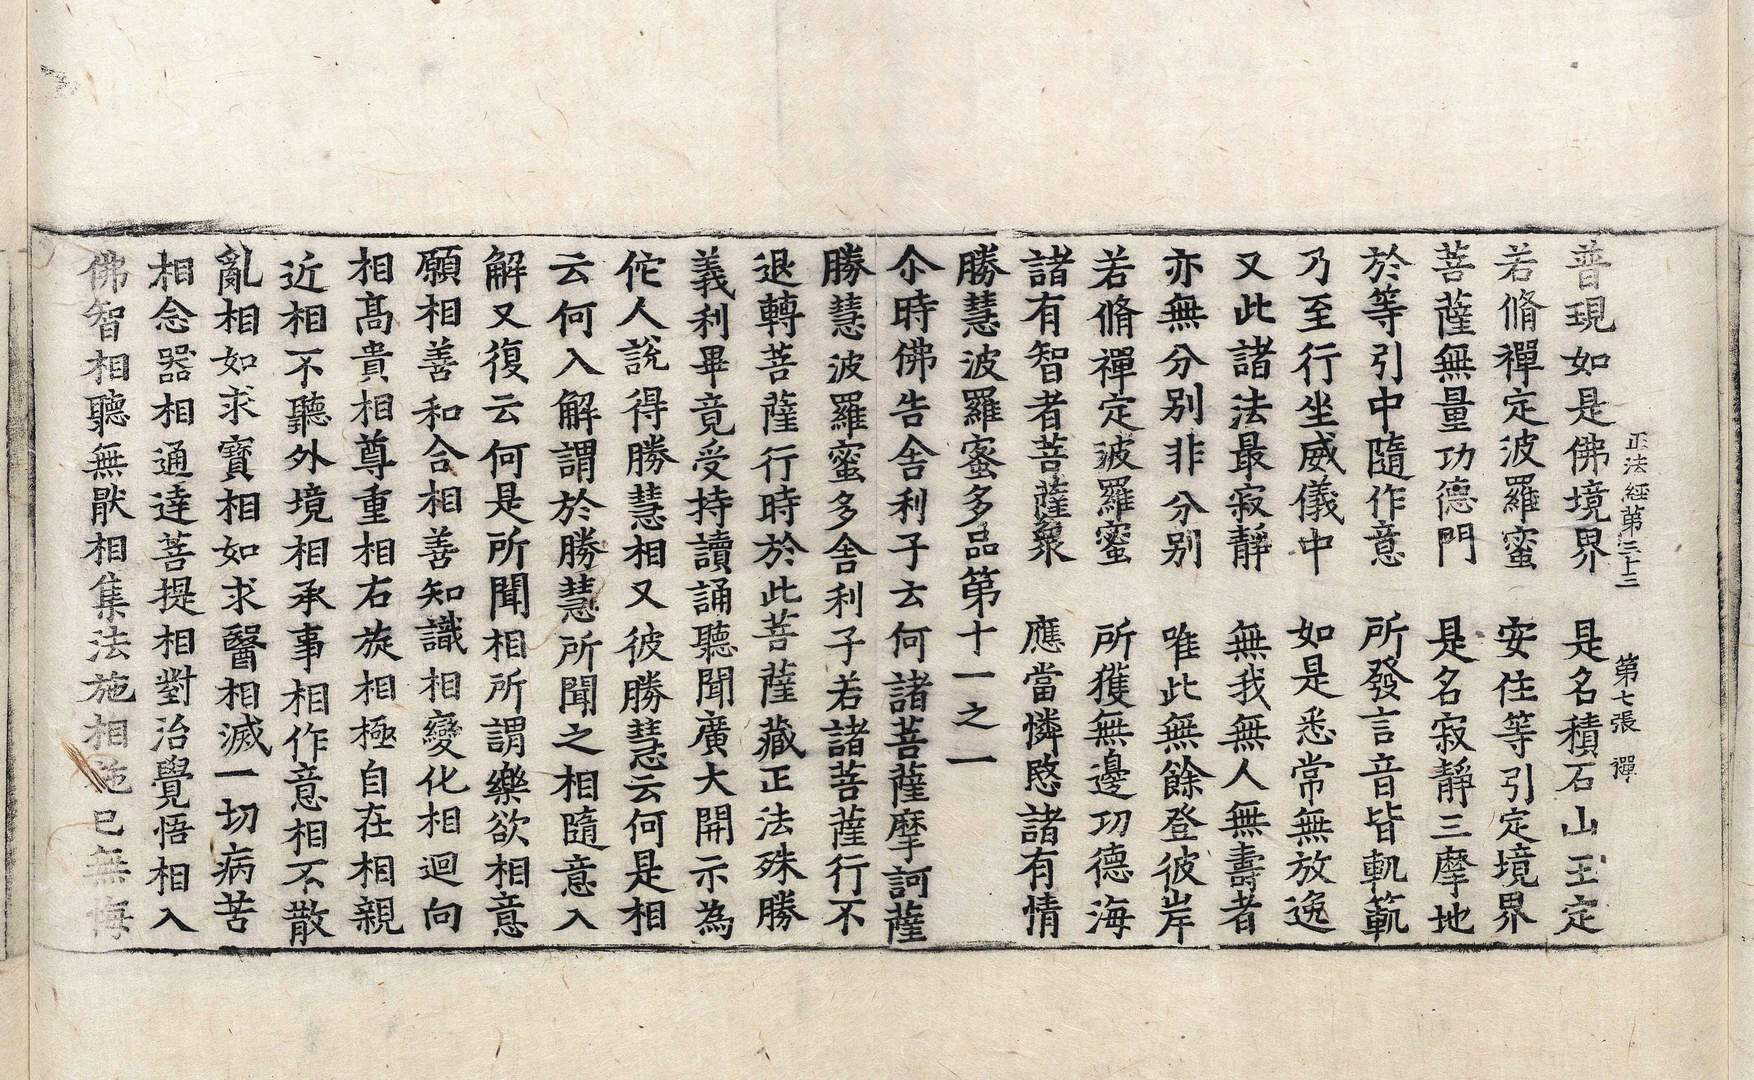 正法經第三十三　第七張　禪
普現如是佛境界　是名積石山王定
若脩禪定波羅蜜　安住等引定境界
菩薩無量功德門　是名寂靜三摩地
於等引中隨作意　所發言音皆軌範
乃至行坐威儀中　如是悉常無放逸
又此諸法最寂靜　無我無人無壽者
亦無分別非分別　唯此無餘登彼岸
若脩禪定波羅蜜　所獲無邊功德海
諸有智者菩薩衆　應當憐愍諸有情
勝慧波羅蜜多品第十一之一
尒時佛告舍利子云何諸菩薩摩訶薩
勝慧波羅蜜多舍利子若諸菩薩行不
退轉菩薩行時於此菩薩藏正法殊勝
義利畢竟受持讀誦聽聞廣大開示為
佗人說得勝慧相又彼勝慧云何是相
云何入解謂於勝慧所聞之相隨意入
解又復云何是所聞相所謂樂欲相意
願相善和合相善知識相變化相迴向
相高貴相尊重相右旋相極自在相親
近相不聽外境相承事相作意相不散
亂相如求寶相如求醫相滅一切病苦
相念器相通達菩提相對治覺悟相入
佛智相聽無猒相集法施相施已無悔